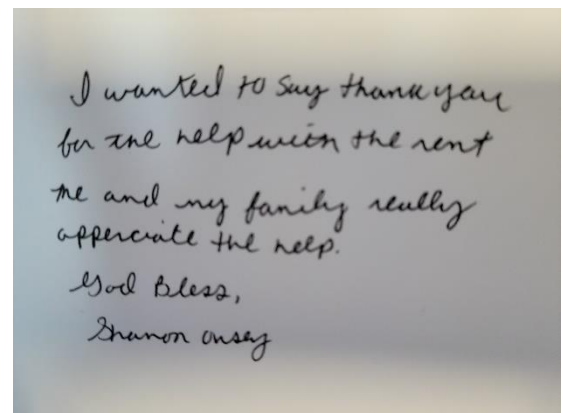 I wanted to say thank you
for the help with the rent
me and my family really
apperciate the help.
God Bless,
Shanon